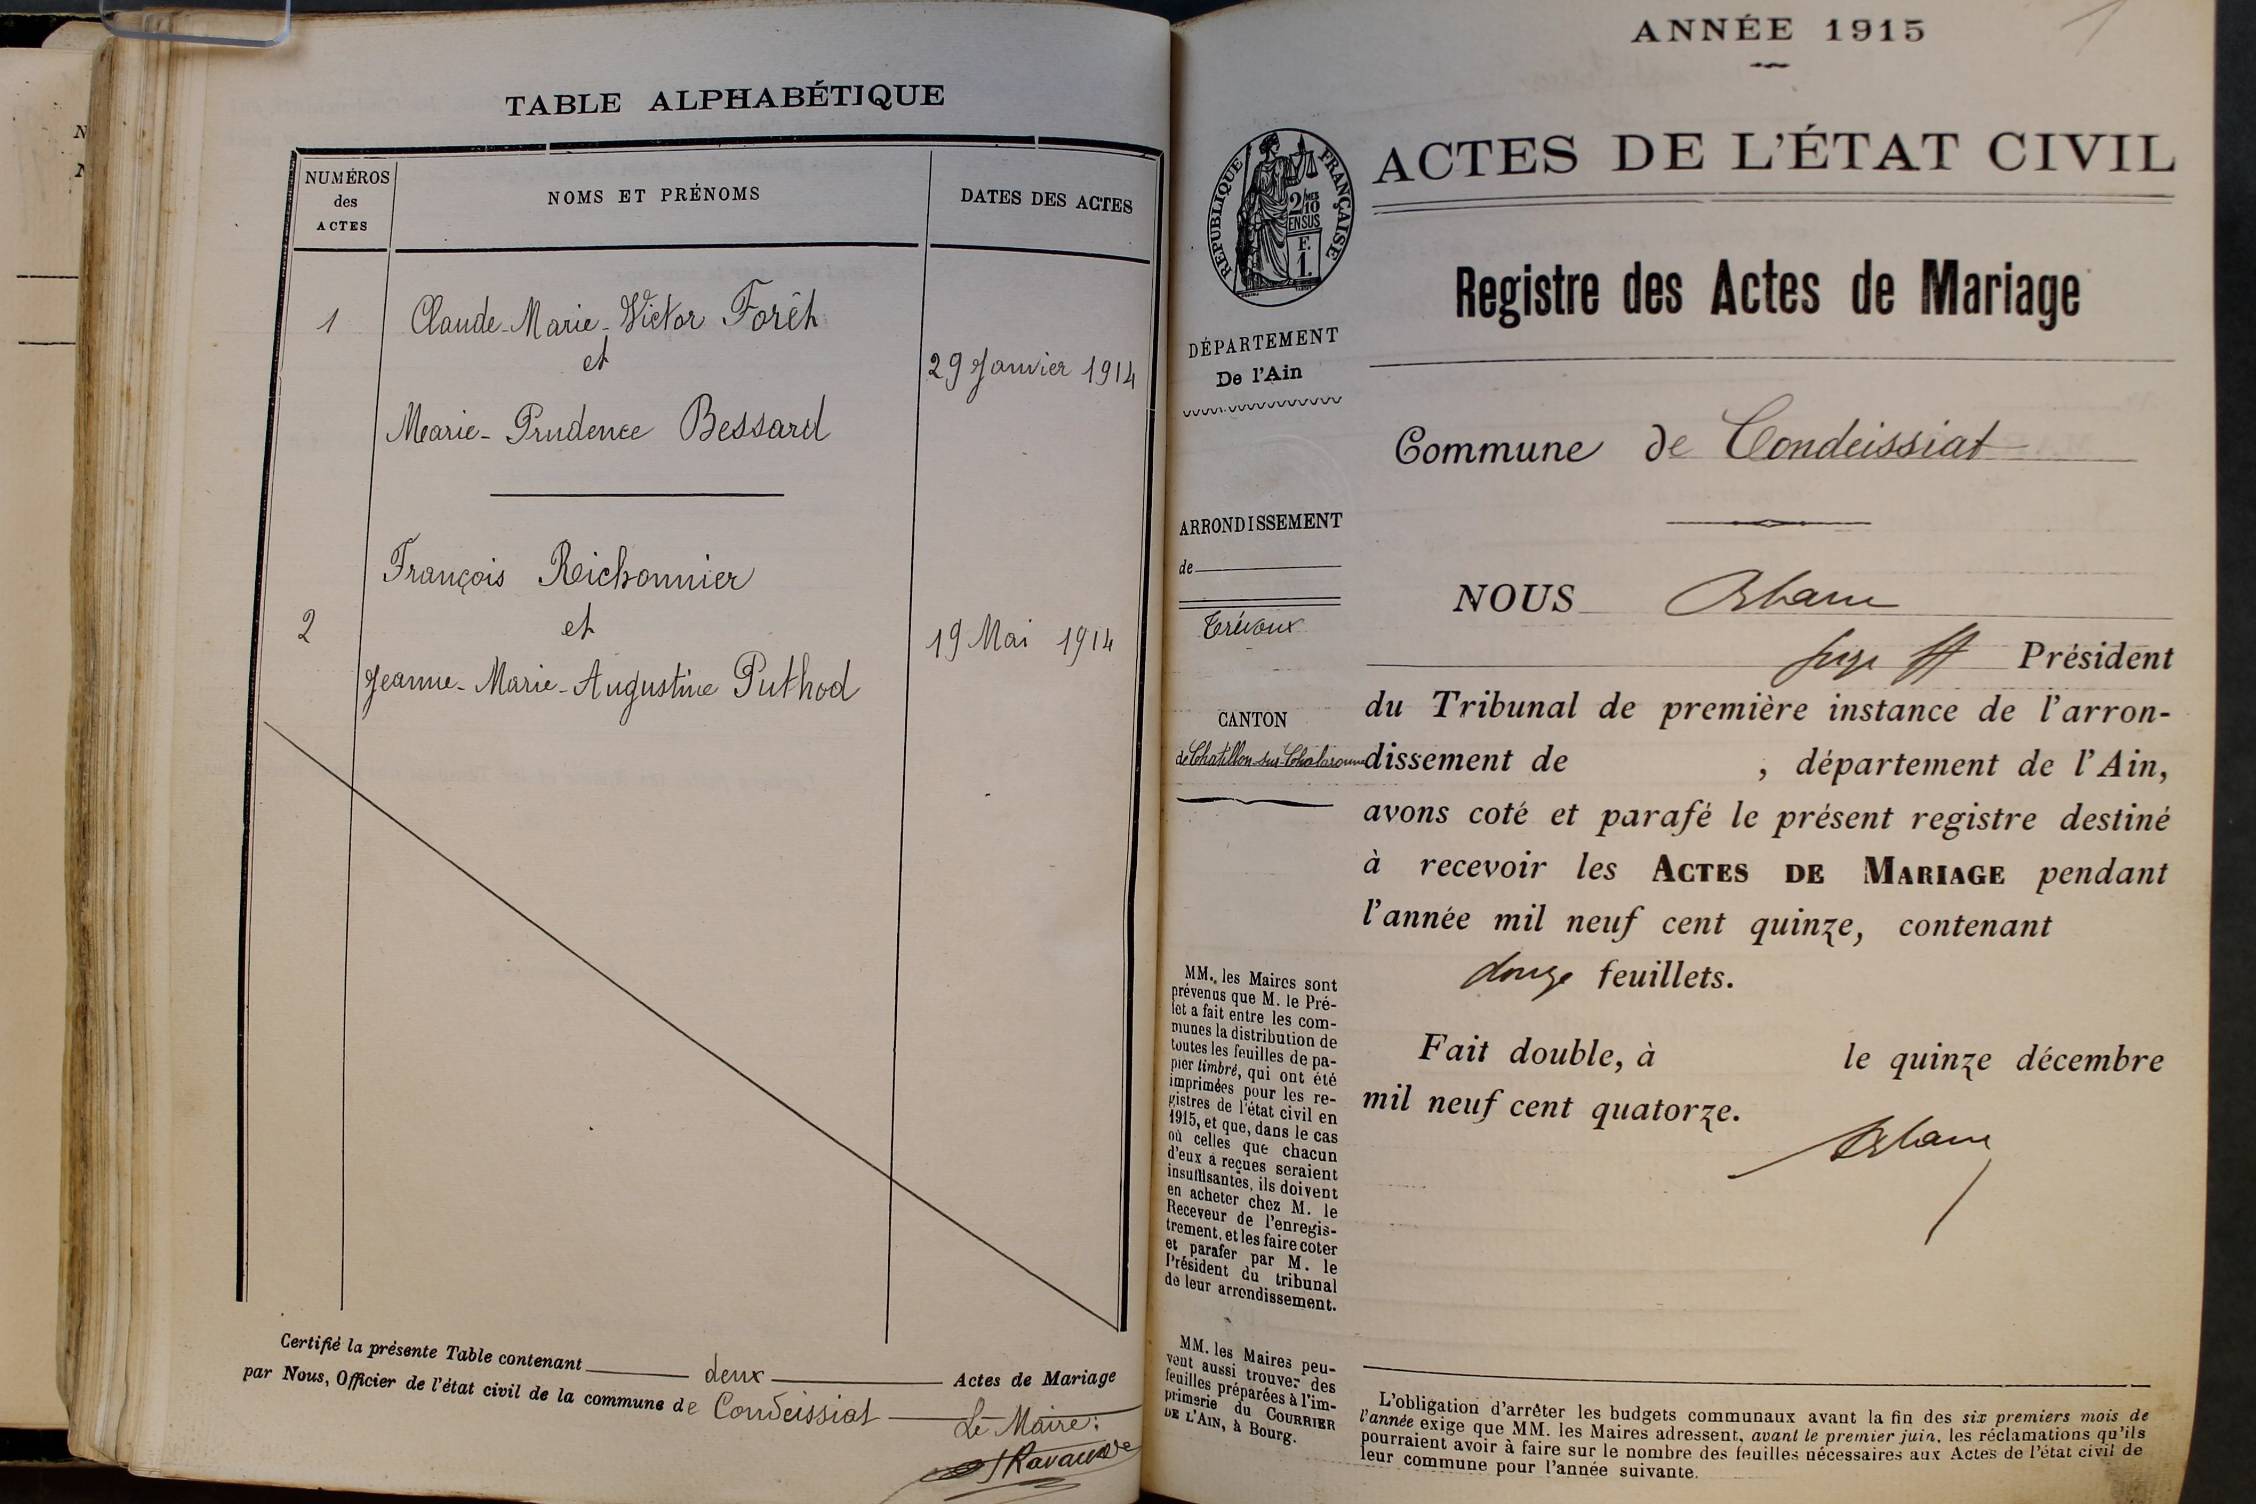 TABLE ALPHABÉTIQUE
NUMÉROS
des
ACTES
NOMS ET PRÉNOMS
DATES DES ACTES
1
Claude-Marie-Victor Forêt
et
29 Janvier 1914
Marie-Prudence Bessard
François Reichonnier
2
et
19 Mai 1914
Jeanne-Marie-Augustine Puthod
Certifié la présente Table contenant deux Actes de Mariage
par Nous, Officier de l'état civil de la commune de Condeissiat
Le Maire:
ANNÉE 1915
1
ACTES DE L'ÉTAT CIVIL
RÉPUBLIQUE FRANÇAISE
2/10
EN SUS
F.
1.
Registre des Actes de Mariage
DÉPARTEMENT
De l'Ain
Commune de Condeissiat
ARRONDISSEMENT
de
Trévoux
CANTON
de Chatillon-sur-Chalaronne
NOUS
juge ff Président
du Tribunal de première instance de l'arron-
dissement de , département de l'Ain,
avons coté et parafé le présent registre destiné
à recevoir les ACTES DE MARIAGE pendant
l'année mil neuf cent quinze, contenant
douze feuillets.
Fait double, à le quinze décembre
mil neuf cent quatorze.
MM. les Maires sont
prévenus que M. le Pré-
fet a fait entre les com-
munes la distribution de
toutes les feuilles de pa-
pier timbré, qui ont été
imprimées pour les re-
gistres de l'état civil en
1915, et que, dans le cas
où celles que chacun
d'eux a reçues seraient
insuffisantes, ils doivent
en acheter chez M. le
Receveur de l'enregis-
trement, et les faire coter
et parafer par M. le
Président du tribunal
de leur arrondissement.
MM. les Maires peu-
vent aussi trouver des
feuilles préparées à l'im-
primerie du COURRIER
DE L'AIN, à Bourg.
L'obligation d'arrêter les budgets communaux avant la fin des six premiers mois de
l'année exige que MM. les Maires adressent, avant le premier juin, les réclamations qu'ils
pourraient avoir à faire sur le nombre des feuilles nécessaires aux Actes de l'état civil de
leur commune pour l'année suivante.